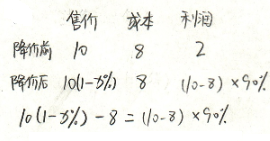 售价 成本 利润
降价前 10 8 2
降价后 10(1-x%) 8 (10-8)×90%
10(1-x%)-8=(10-8)×90%